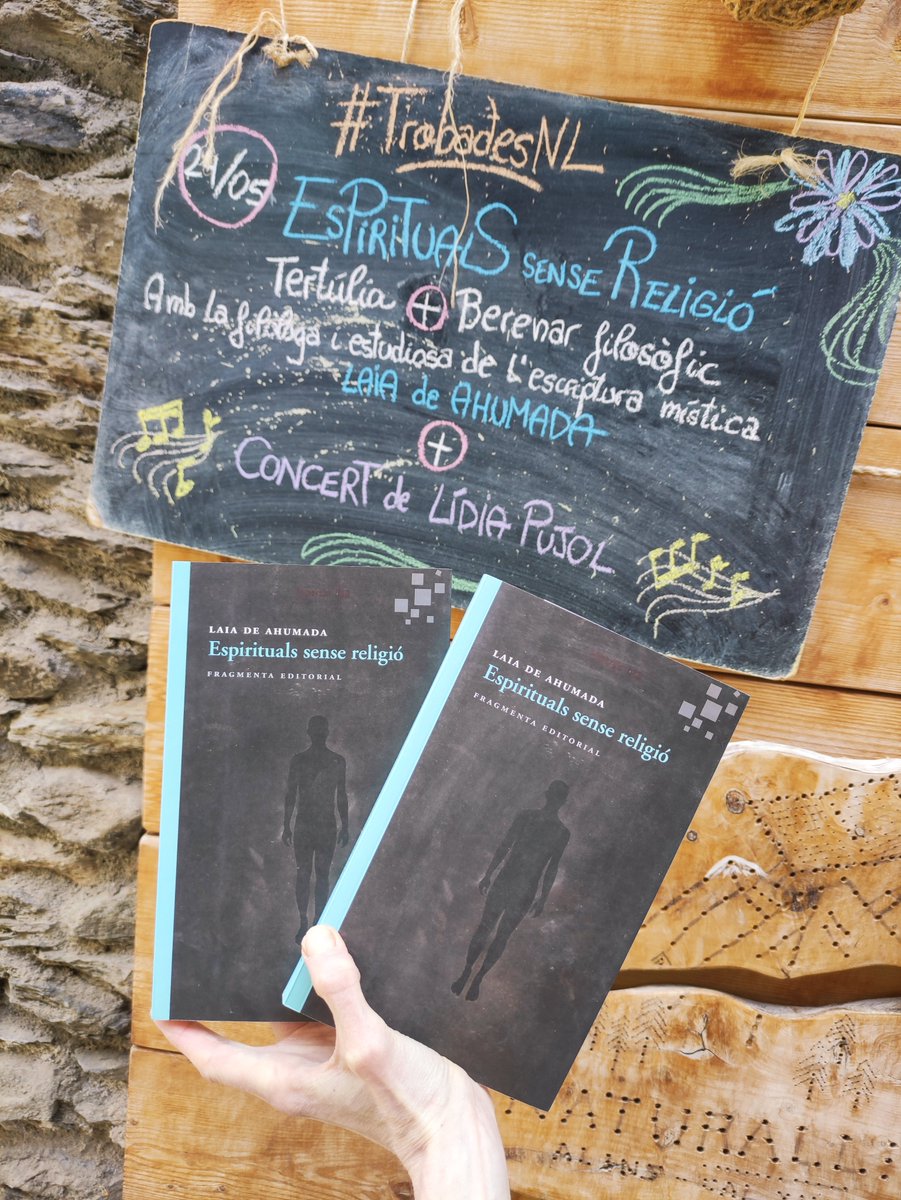 #TrobadesNL
21/05
ESPIRITUALS SENSE RELIGIÓ
Tertúlia + Berenar filosòfic
Amb la filòloga i estudiosa de l'escriptura mística
LAIA de AHUMADA
+
CONCERT de LÍDIA PUJOL
LAIA DE AHUMADA
Espirituals sense religió
FRAGMENTA EDITORIAL
LAIA DE AHUMADA
Espirituals sense religió
FRAGMENTA EDITORIAL
NATURAL
ALINS